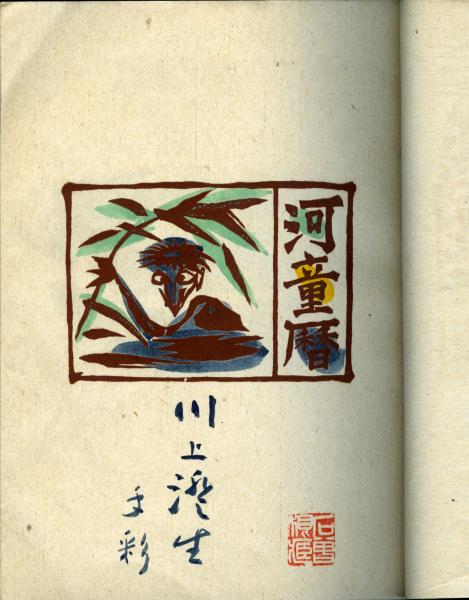 河童暦
川上澄生
手彩